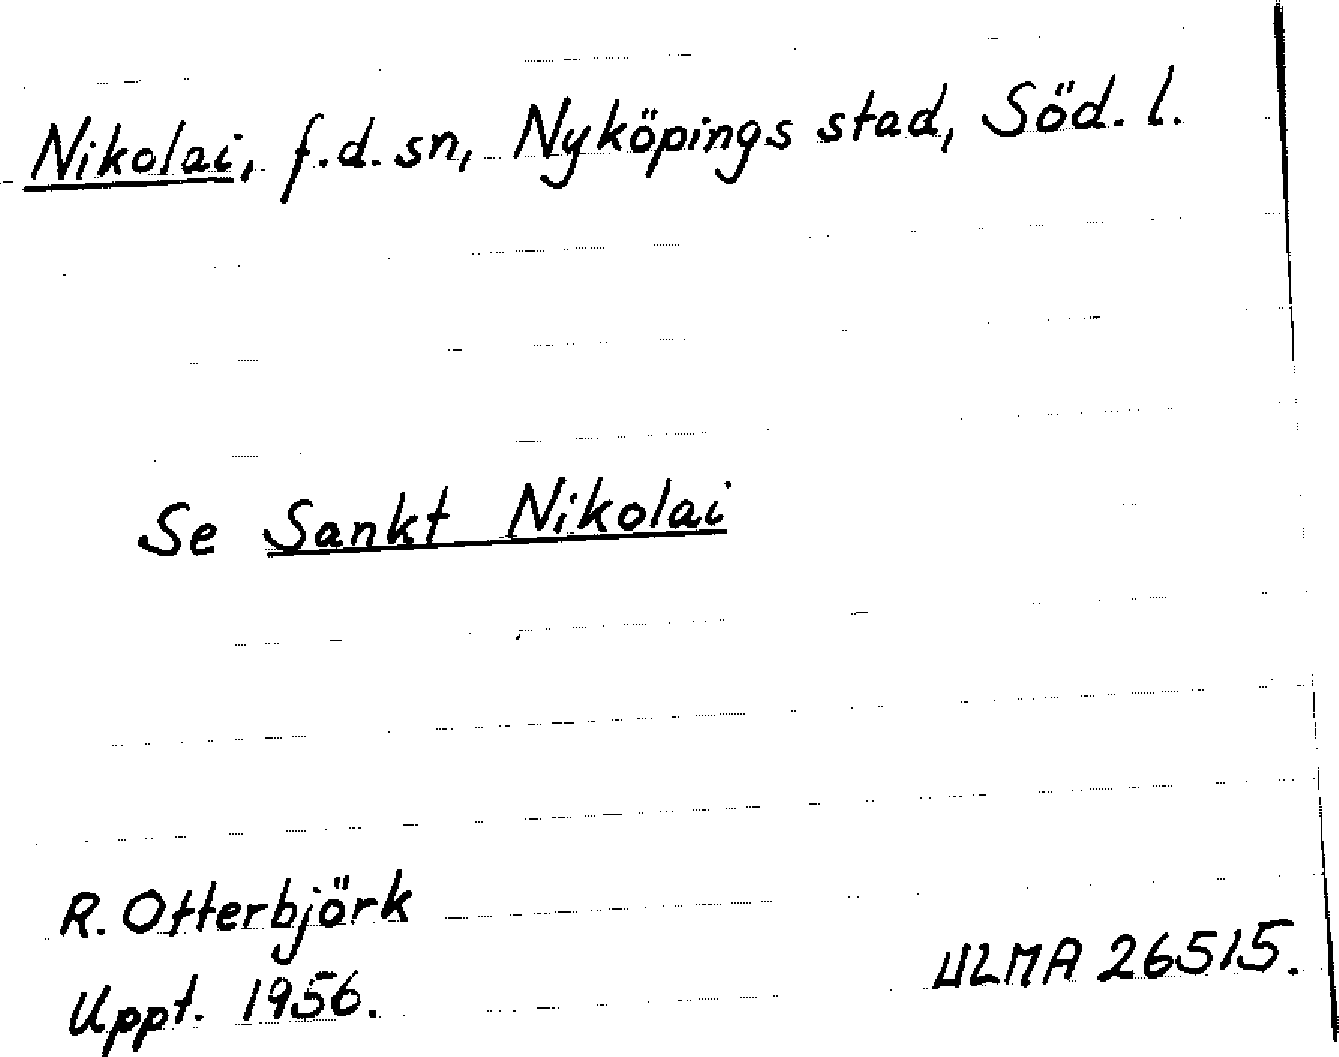 Nikolai, f.d. sn, Nyköpings stad, Söd. l.
Se Sankt Nikolai
R. Otterbjörk
Uppt. 1956.
ULMA 26515.